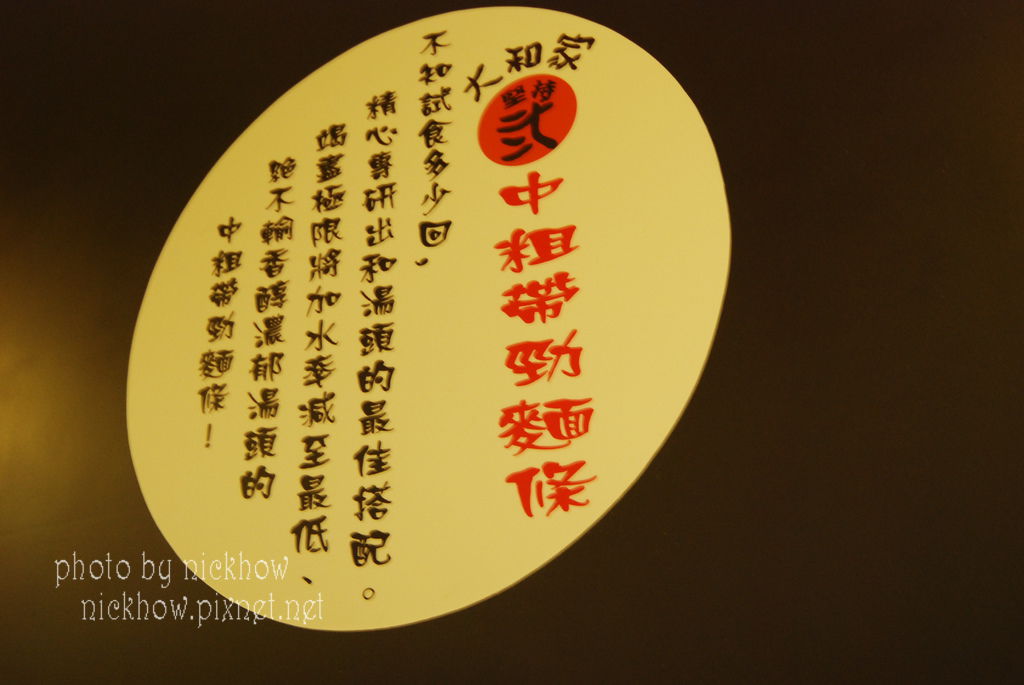 大和家
堅持
弍
中粗帶勁麵條
不知試食多少回、
精心專研出和湯頭的最佳搭配。
竭盡極限將加水率減至最低、
絕不輸香醇濃郁湯頭的
中粗帶勁麵條！
photo by nickhow
nickhow.pixnet.net